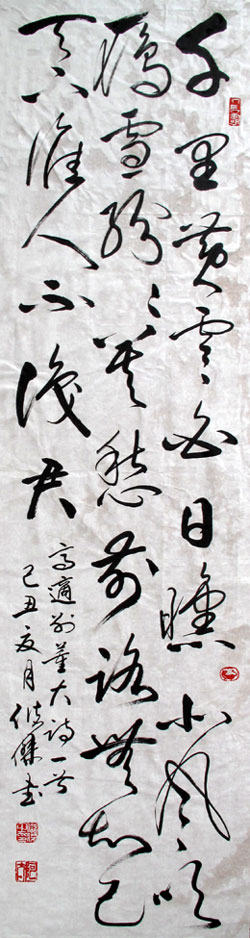 千里黄雲白日曛北風吹
鴈雪紛〻莫愁前路無知己
天下誰人不識君
高適別董大詩一首
己丑夏月傑書